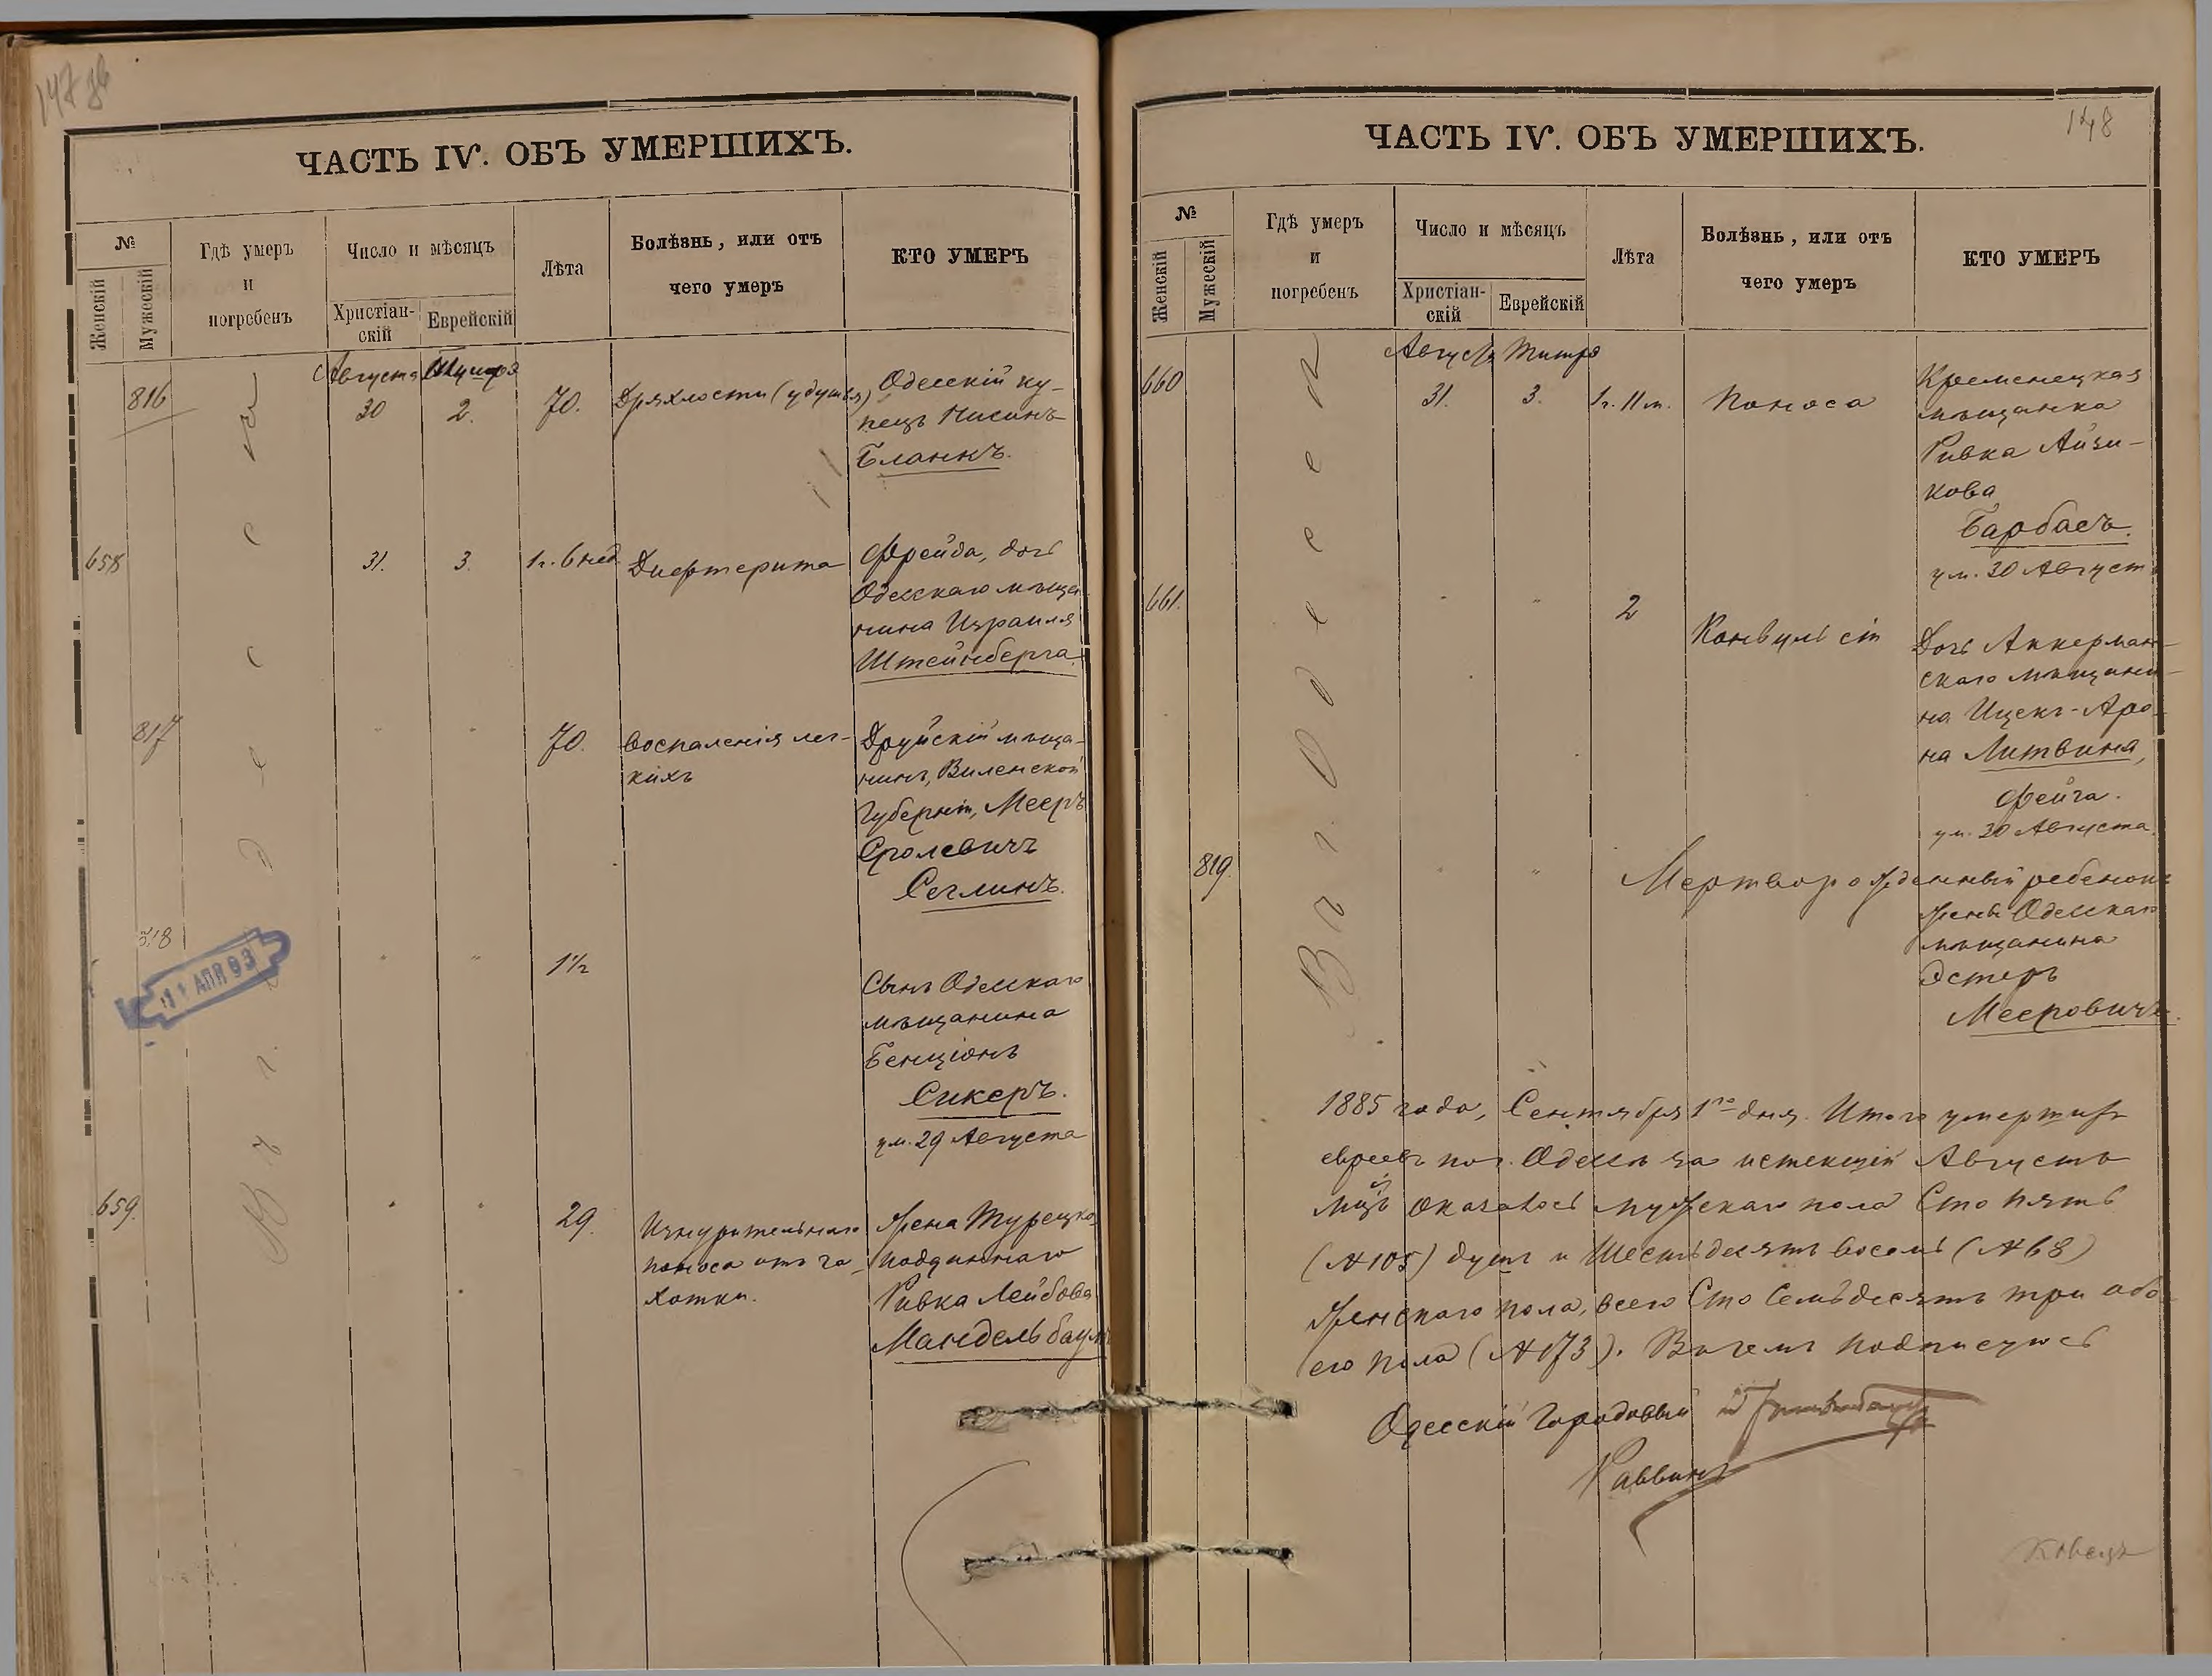 147 об
ЧАСТЬ IV. ОБЪ УМЕРШИХЪ.
№
Женскій
Мужескій
Гдѣ умеръ
и
погребенъ
Число и мѣсяцъ
Христіан-
скій
Еврейскій
Лѣта
Болѣзнь, или отъ
чего умеръ
КТО УМЕРЪ
Въ г. Одессѣ
Августа
816
30
2.
70.
Дряхлости (удушья)
Одесскій ку-
пецъ Нисинъ
Бланкъ.
658
31.
3.
1 г. 6 нед.
Дифтерита
Фрейда, дочь
Одесскаго мѣща
нина Израиля
Штейнберга.
817
"
"
70.
воспаленія лег-
кихъ
Друйскій мѣща-
нинъ, Виленской
Губерніи, Мееръ
Сролевичъ
Сеглинъ.
818
"
"
1½
Сынъ Одесскаго
мѣщанина
Бенціонъ
Сикеръ.
ум. 29 Августа
11 АПР 93
659.
"
"
29.
Изнурительнаго
поноса отъ ча-
хотки.
Жена Турецко
подданнаго
Ривка Лейбова
Мандельбаумъ
148
ЧАСТЬ IV. ОБЪ УМЕРШИХЪ.
№
Женскій
Мужескій
Гдѣ умеръ
и
погребенъ
Число и мѣсяцъ
Христіан-
скій
Еврейскій
Лѣта
Болѣзнь, или отъ
чего умеръ
КТО УМЕРЪ
Въ г. Одессѣ
Августа Тишре
660
31.
3.
1 г. 11 м.
Поноса
Кременецкая
мѣщанка
Ривка Айзи-
кова
Барбасъ.
ум. 30 Август
661.
"
"
2
Конвульсіи
Дочь Аккерман-
скаго мѣщани-
на Ицекъ-Аро-
на Литвина,
Фейга.
ум. 30 Августа.
819.
"
"
Мертворожденный ребенокъ
жены Одесскаго
мѣщанина
Эстеръ
Мееровичъ.
1885 года, Сентября 1го дня. Итого умершихъ
евреевъ по г. Одессѣ за истекшій Августъ
мцъ оказалось мужскаго пола Сто пять
(№ 105) душъ и Шестьдесятъ восемь (№ 68)
женскаго пола, всего Сто Семьдесятъ три обо
его пола (№ 173). Въ чемъ подписуюсь
Одесскій Городовый
Раввинъ